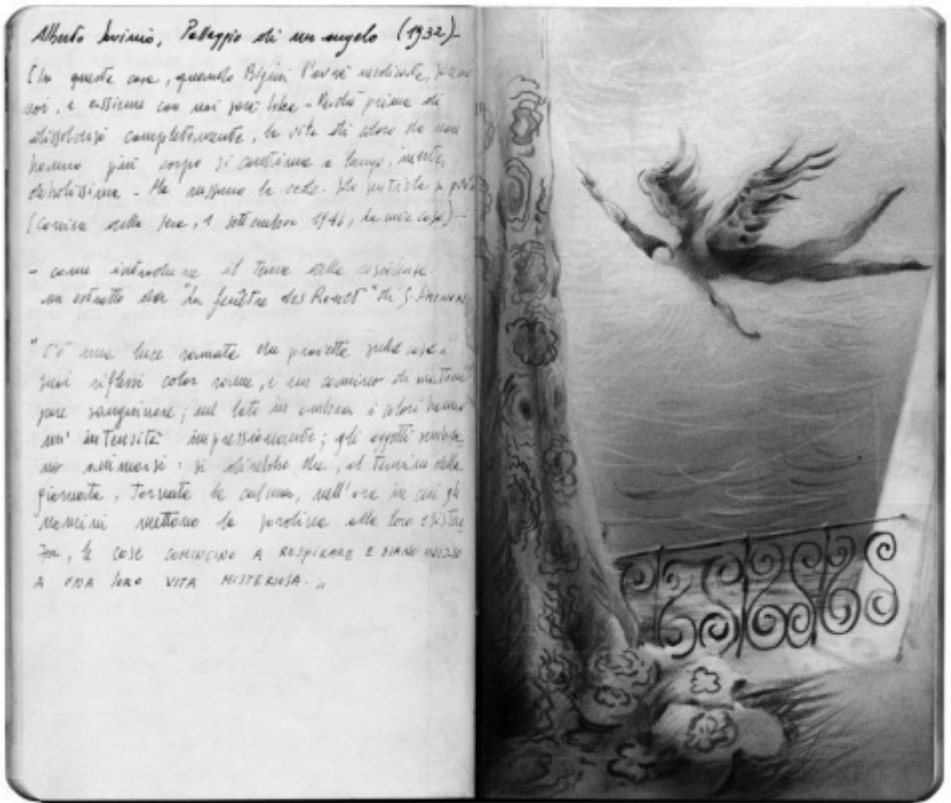 Alberto Savinio, Passaggio di un angelo (1932)-
(In questa casa, quando Bigini l'avrà riedificata,
noi, e assieme con noi sarà - Perché prima di
dissolversi completamente, la vita di coloro che non
hanno più corpo si continua a lungo, inerte,
debolissima - Ma nessuno la vede. a
(Corriere della Sera, 1 settembre 1946, La mia casa)-
- come introdurre il tema della
un estratto da "La fenêtre des Rouet" di G. Simenon
"C'è una luce che proietta sulle cose i
suoi riflessi color rame, e un comino di mattoni
pare sanguinare; nel lato in ombra i colori hanno
un'intensità impressionante; gli oggetti sembra
no animarsi: si direbbe che, al termine della
giornata, tornata la calma, nell'ora in cui gli
uomini mettono la sordina alla loro esisten
za, le COSE COMINCINO A RESPIRARE E DIANO INIZIO
A UNA LORO VITA MISTERIOSA.„